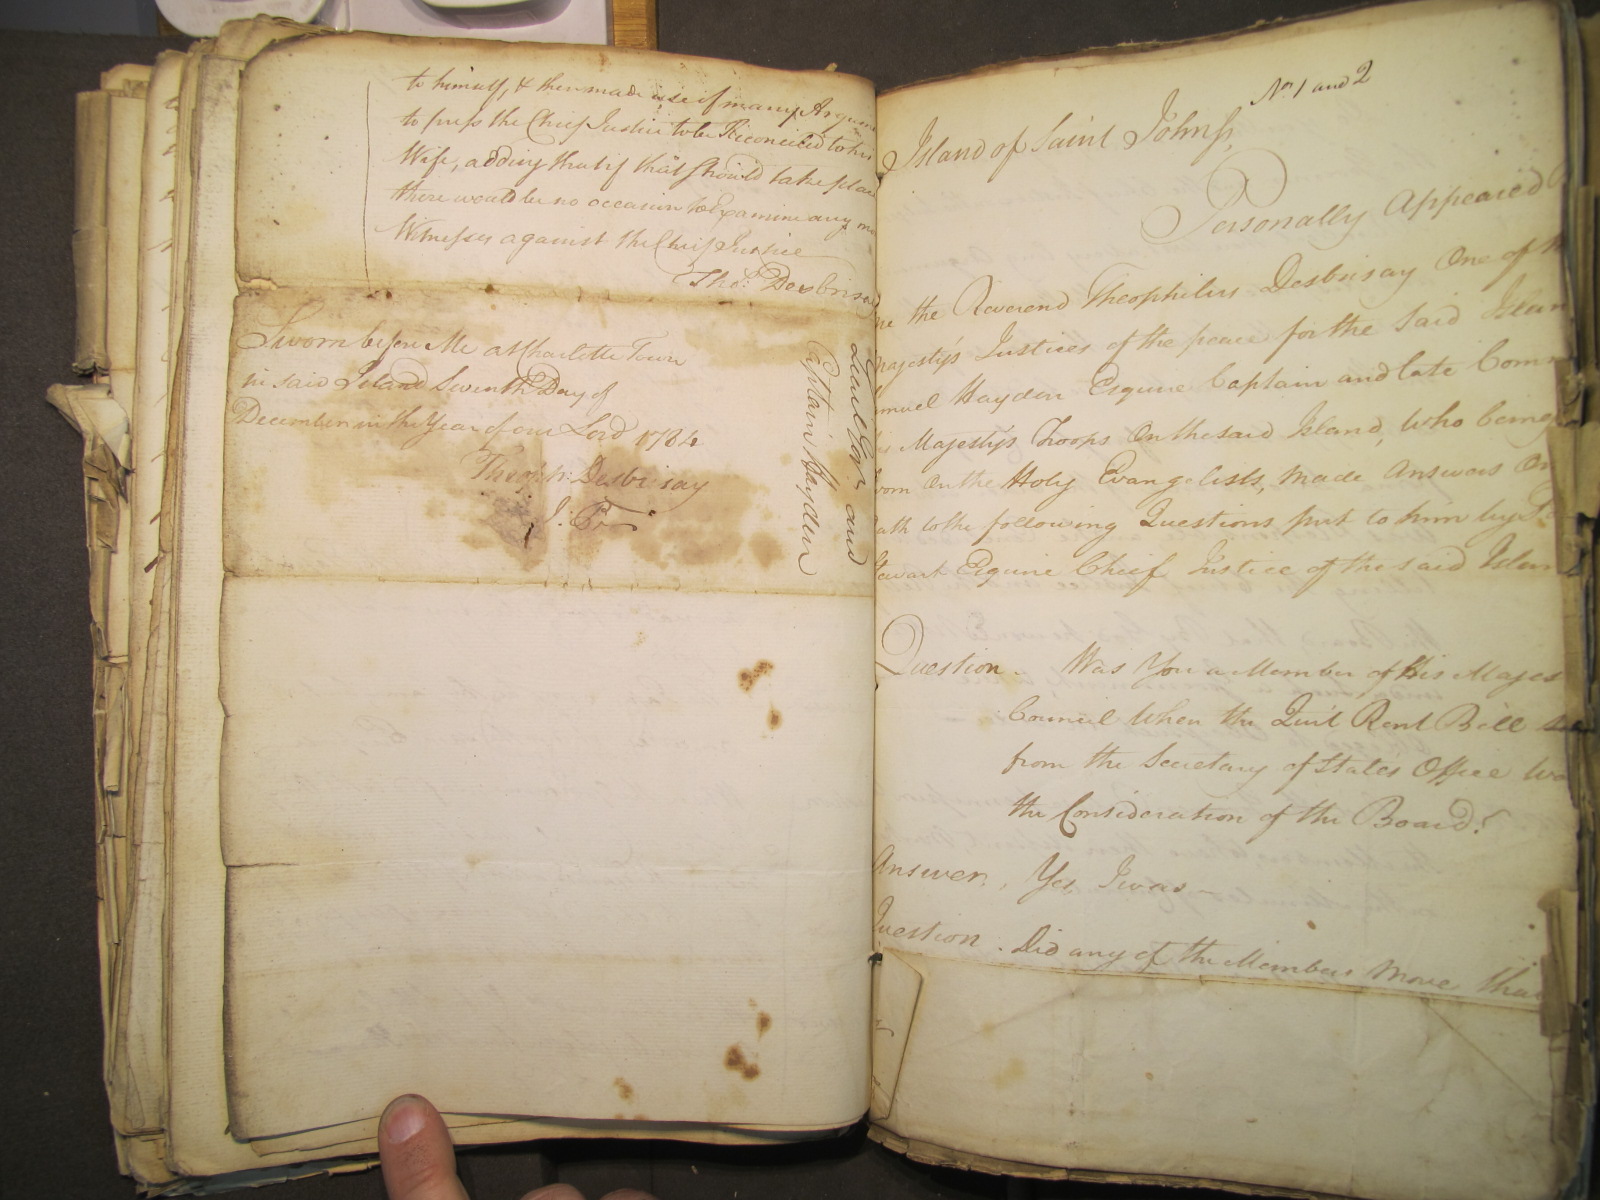 to himself, & then made use of many Argum
to press the Chief Justice to be Reconciled to his
Wife, adding that if that should take place
there would be no occasion to Examine any mo
Witnesses against the Chief Justice
Tho.s Desbrisay
Sworn before Me at Charlotte Town
in said Island Seventh Day of
December in the Year of our Lord 1784
Theoph: Desbrisay
J: P.
Lieut Gor and
Captain Hayden
No 1 and 2
Island of Saint John ss,
Personally Appeared
me the Reverend Theophilus Desbrisay One of
Majesty's Justices of the peace for the Said Islan
muel Hayden Esquire Captain and late Comm
is Majesty's Troops On the said Island, Who being
worn On the Holy Evangelists, made Answers On
ath to the following Questions put to him by
tewart Esquire Chief Justice of the said Islan
Question. Was You a Member of His Majes
Council When the Quit Rent Bill
from the Secretary of States Office
the Consideration of the Board?
Answer, Yes I was
Question. Did any of the Members Move that